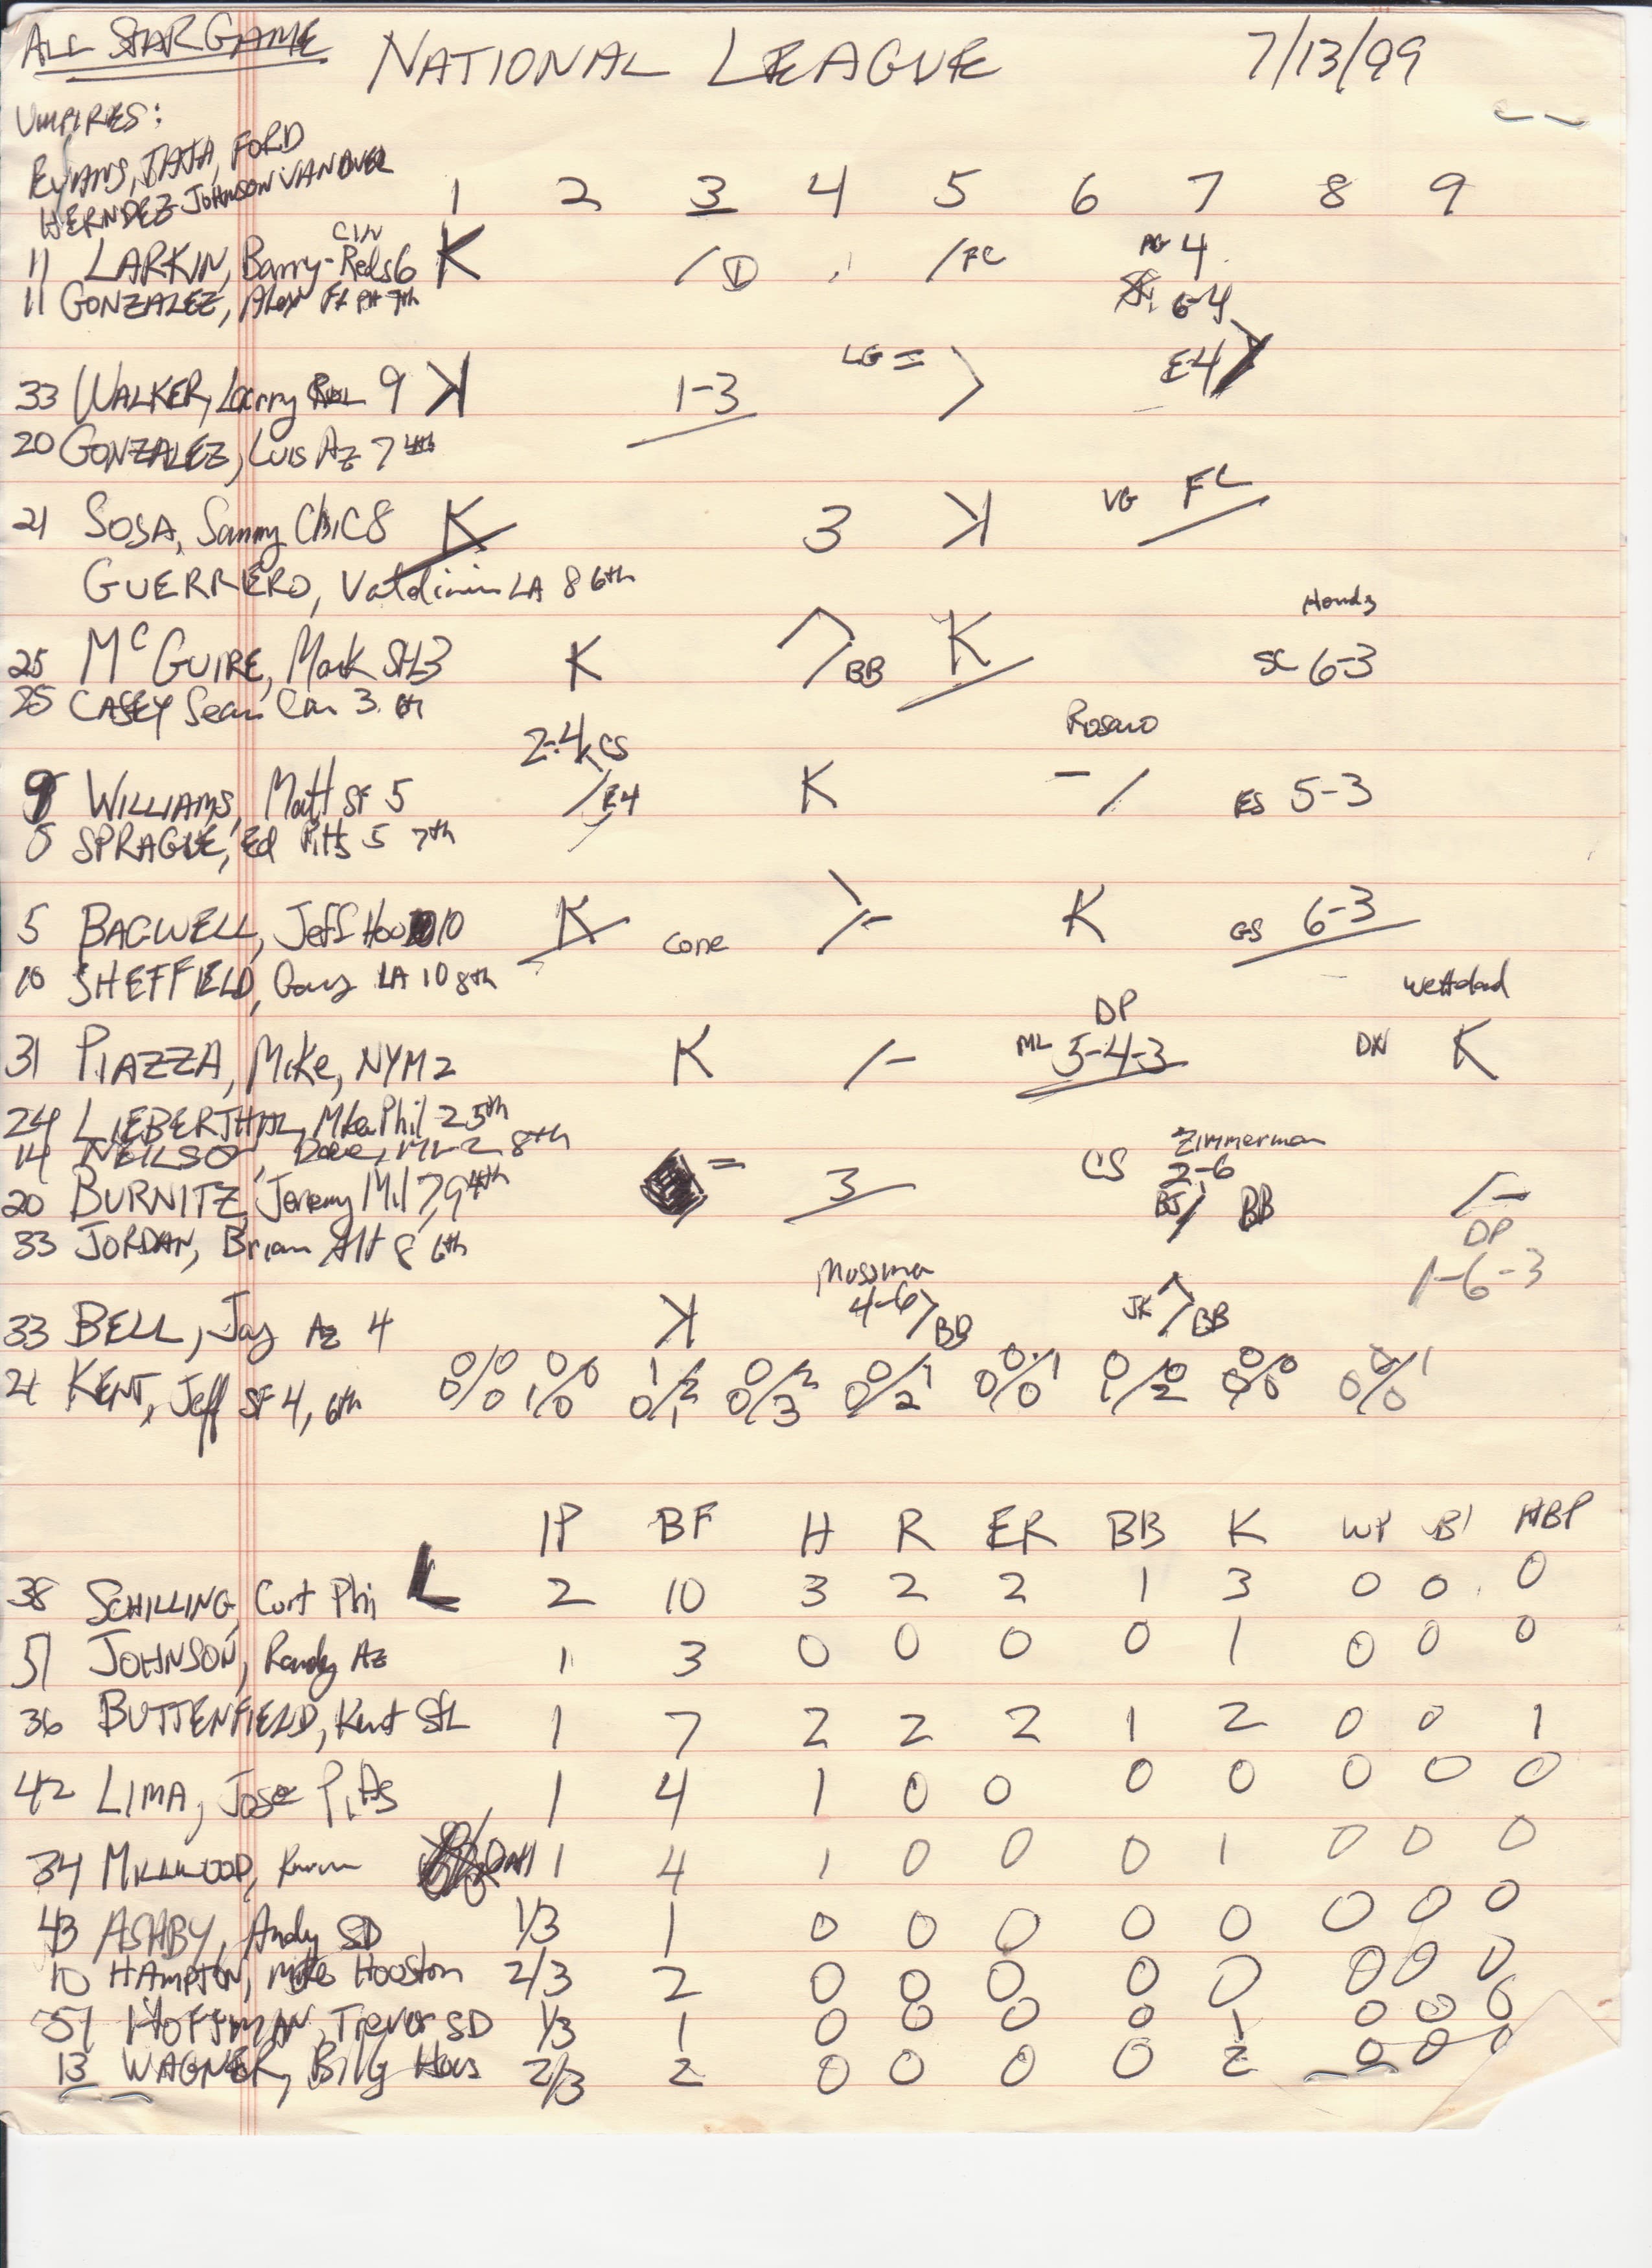 ALL STAR GAME NATIONAL LEAGUE 7/13/99
UMPIRES:
EVANS, TATA, FORD
HERNDEZ JOHNSON VANOVER
1 2 3 4 5 6 7 8 9
CIN
11 LARKIN, Barry-Reds 6 K / / FC AG 4
11 GONZALEZ, Alex FL PH 7th 6-4
LG =
33 WALKER, Larry 9 K 1-3 E4
20 GONZALEZ, Luis Az 7 4th
21 SOSA, Sammy ChiC 8 K 3 K VG FC
GUERRERO, Valdimir LA 8 6th
25 McGUIRE, Mark StL 3 K BB K SC 6-3
25 CASEY Sean Cin 3. 6th
2-4 CS Rosaro
9 WILLIAMS, Matt SF 5 / E4 K - / ES 5-3
5 SPRAGUE, Ed Pitts 5 7th
5 BAGWELL, Jeff Hou 10 K Cone /- K GS 6-3
10 SHEFFIELD, Gary LA 10 8th
DP
31 PIAZZA, Mike, NYM 2 K /- ML 5-4-3 DN K
24 LIEBERTHAL, Mike Phil 2 5th
14 NEILSON, Dave, Mil 2 8th
Zimmerman
= CS 2-6
20 BURNITZ, Jeremy Mil 7,9 4th 3 BJ/ BB /-
33 JORDAN, Brian Atl 8 6th DP
1-6-3
Mussina
4-6
33 BELL, Jay Az 4 K BB JK BB
21 KENT, Jeff SF 4, 6th 0/0 0/0 0/0 1/0 1/2 0/1 0/2 0/3 0/1 0/2 0/1 0/0 0/0 1/2 0/0 0/0 0/1 0/0
IP BF H R ER BB K WP B HBP
38 SCHILLING, Curt Phi L 2 10 3 2 2 1 3 0 0 0
51 JOHNSON, Randy Az 1 3 0 0 0 0 1 0 0 0
36 BUTTENFIELD, Kent StL 1 7 2 2 2 1 2 0 0 1
42 LIMA, Jose Pitts 1 4 1 0 0 0 0 0 0 0
34 MILLWOOD, 1 4 1 0 0 0 1 0 0 0
43 ASHBY, Andy SD 1/3 1 0 0 0 0 0 0 0 0
10 HAMPTON, Mike Hooston 2/3 2 0 0 0 0 0 0 0 0
51 HOFFMAN, Trevor SD 1/3 1 0 0 0 0 1 0 0 0
13 WAGNER, Billy Hous 2/3 2 0 0 0 0 2 0 0 0